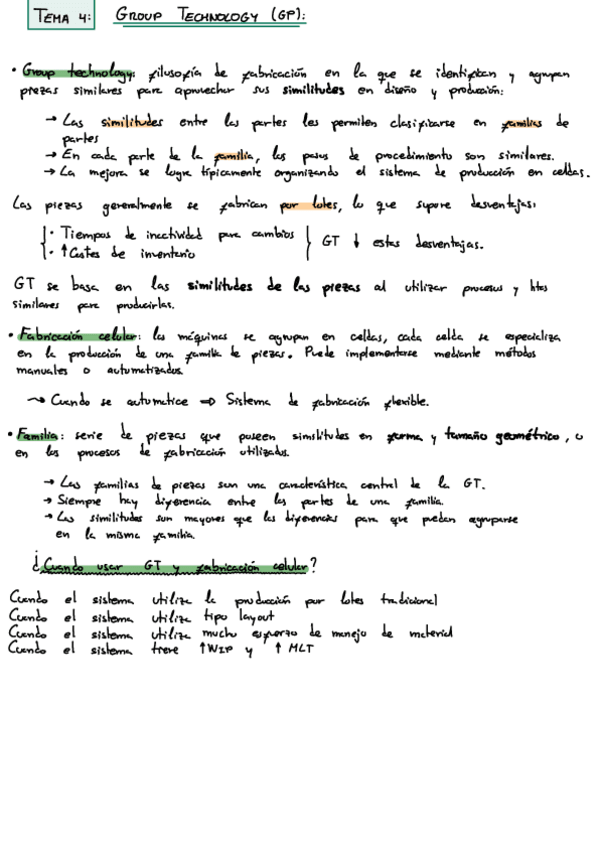 TEMA 4: GROUP TECHNOLOGY (GP):
• Group technology: filosofía de fabricación en la que se identifican y agrupan
piezas similares para aprovechar sus similitudes en diseño y producción:
→ Las similitudes entre las partes les permiten clasificarse en familias de
partes
→ En cada parte de la familia, los pasos de procedimiento son similares.
→ La mejora se logra típicamente organizando el sistema de producción en celdas.
Las piezas generalmente se fabrican por lotes, lo que supone desventajas:
· Tiempos de inactividad para cambios
· ↑Costes de inventario
GT ↓ estas desventajas.
GT se basa en las similitudes de las piezas al utilizar procesos y htas
similares para producirlas.
• Fabricación celular: las máquinas se agrupan en celdas, cada celda se especializa
en la producción de una familia de piezas. Puede implementarse mediante métodos
manuales o automatizados.
↝ Cuando se automatice ⇒ Sistema de fabricación flexible.
• Familia: serie de piezas que poseen similitudes en forma y tamaño geométrico, o
en los procesos de fabricación utilizados.
→ Las familias de piezas son una característica central de la GT.
→ Siempre hay diferencia entre las partes de una familia.
→ Las similitudes son mayores que las diferencias para que puedan agruparse
en la misma familia.
¿Cuando usar GT y fabricación celular?
Cuando el sistema utilize la producción por lotes tradicional
Cuando el sistema utilize tipo layout
Cuando el sistema utilize mucho esfuerzo de manejo de material
Cuando el sistema tiene ↑WIP y ↑ MLT